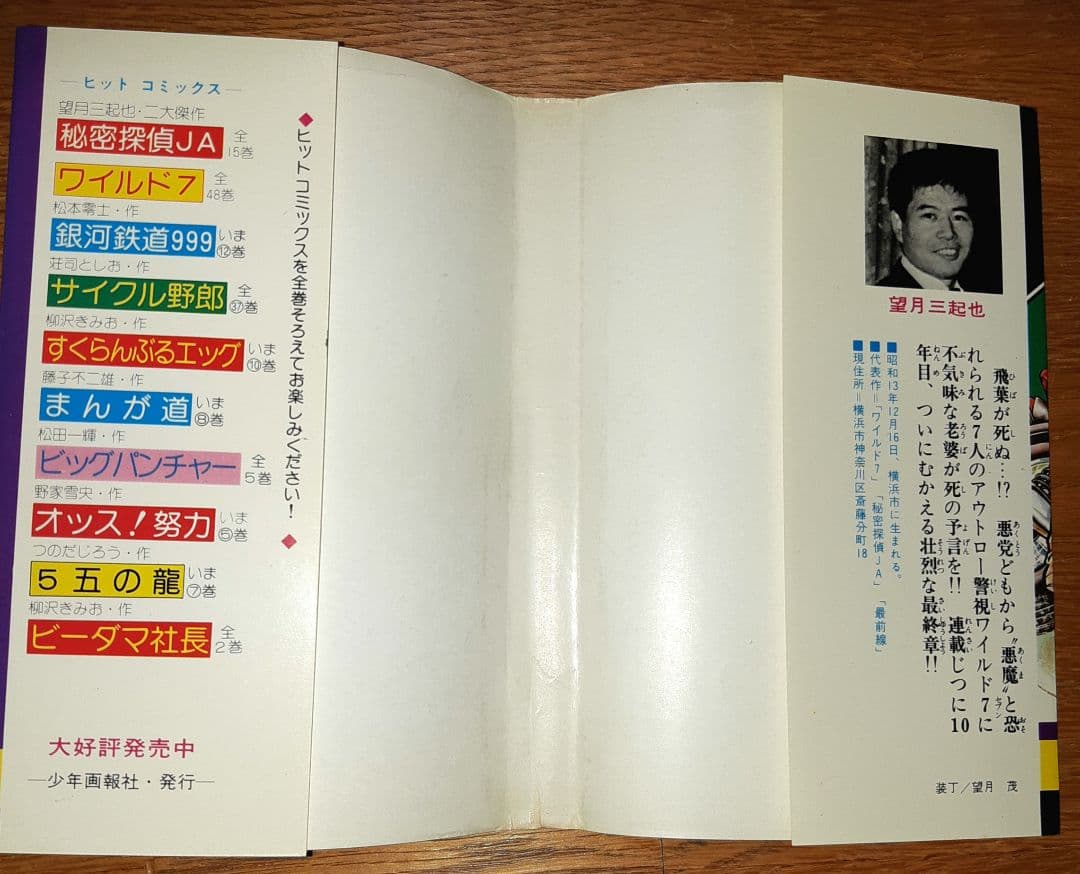 ―ヒット コミックス―
望月三起也・二大傑作
秘密探偵JA 全15巻
ワイルド7 全48巻
松本零士・作
銀河鉄道999 いま⑫巻
荘司としお・作
サイクル野郎 全㊲巻
柳沢きみお・作
すくらんぶるエッグ いま⑩巻
藤子不二雄・作
まんが道 いま⑧巻
松田一輝・作
ビッグパンチャー 全5巻
野家雪央・作
オッス!努力 いま⑤巻
つのだじろう・作
5五の龍 いま⑦巻
柳沢きみお・作
ビーダマ社長 全2巻
大好評発売中
―少年画報社・発行―
◆ヒットコミックスを全巻そろえてお楽しみください!◆
望月三起也
飛葉が死ぬ…!? 悪党どもから〝悪魔〟と恐
れられる7人のアウトロー警視ワイルド7に
不気味な老婆が死の予言を!! 連載じつに10
年目、ついにむかえる壮烈な最終章!!
■昭和13年12月16日、横浜市に生まれる。
■代表作=「ワイルド7」「秘密探偵JA」「最前線」
■現住所=横浜市神奈川区斎藤分町18
装丁/望月 茂